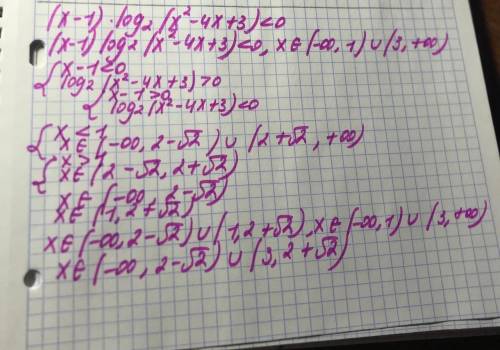 (x-1)·log₂(x²-4x+3)<0
(x-1)log₂(x²-4x+3)<0, x∈(-∞,1)∪(3,+∞)
{x-1<0
log₂(x²-4x+3)>0
{x-1>0
log₂(x²-4x+3)<0
{x<1
x∈(-∞,2-√2)∪(2+√2,+∞)
{x>1
x∈(2-√2,2+√2)
x∈(-∞,2-√2)
x∈(1,2+√2)
x∈(-∞,2-√2)∪(1,2+√2),x∈(-∞,1)∪(3,+∞)
x∈(-∞,2-√2)∪(3,2+√2)